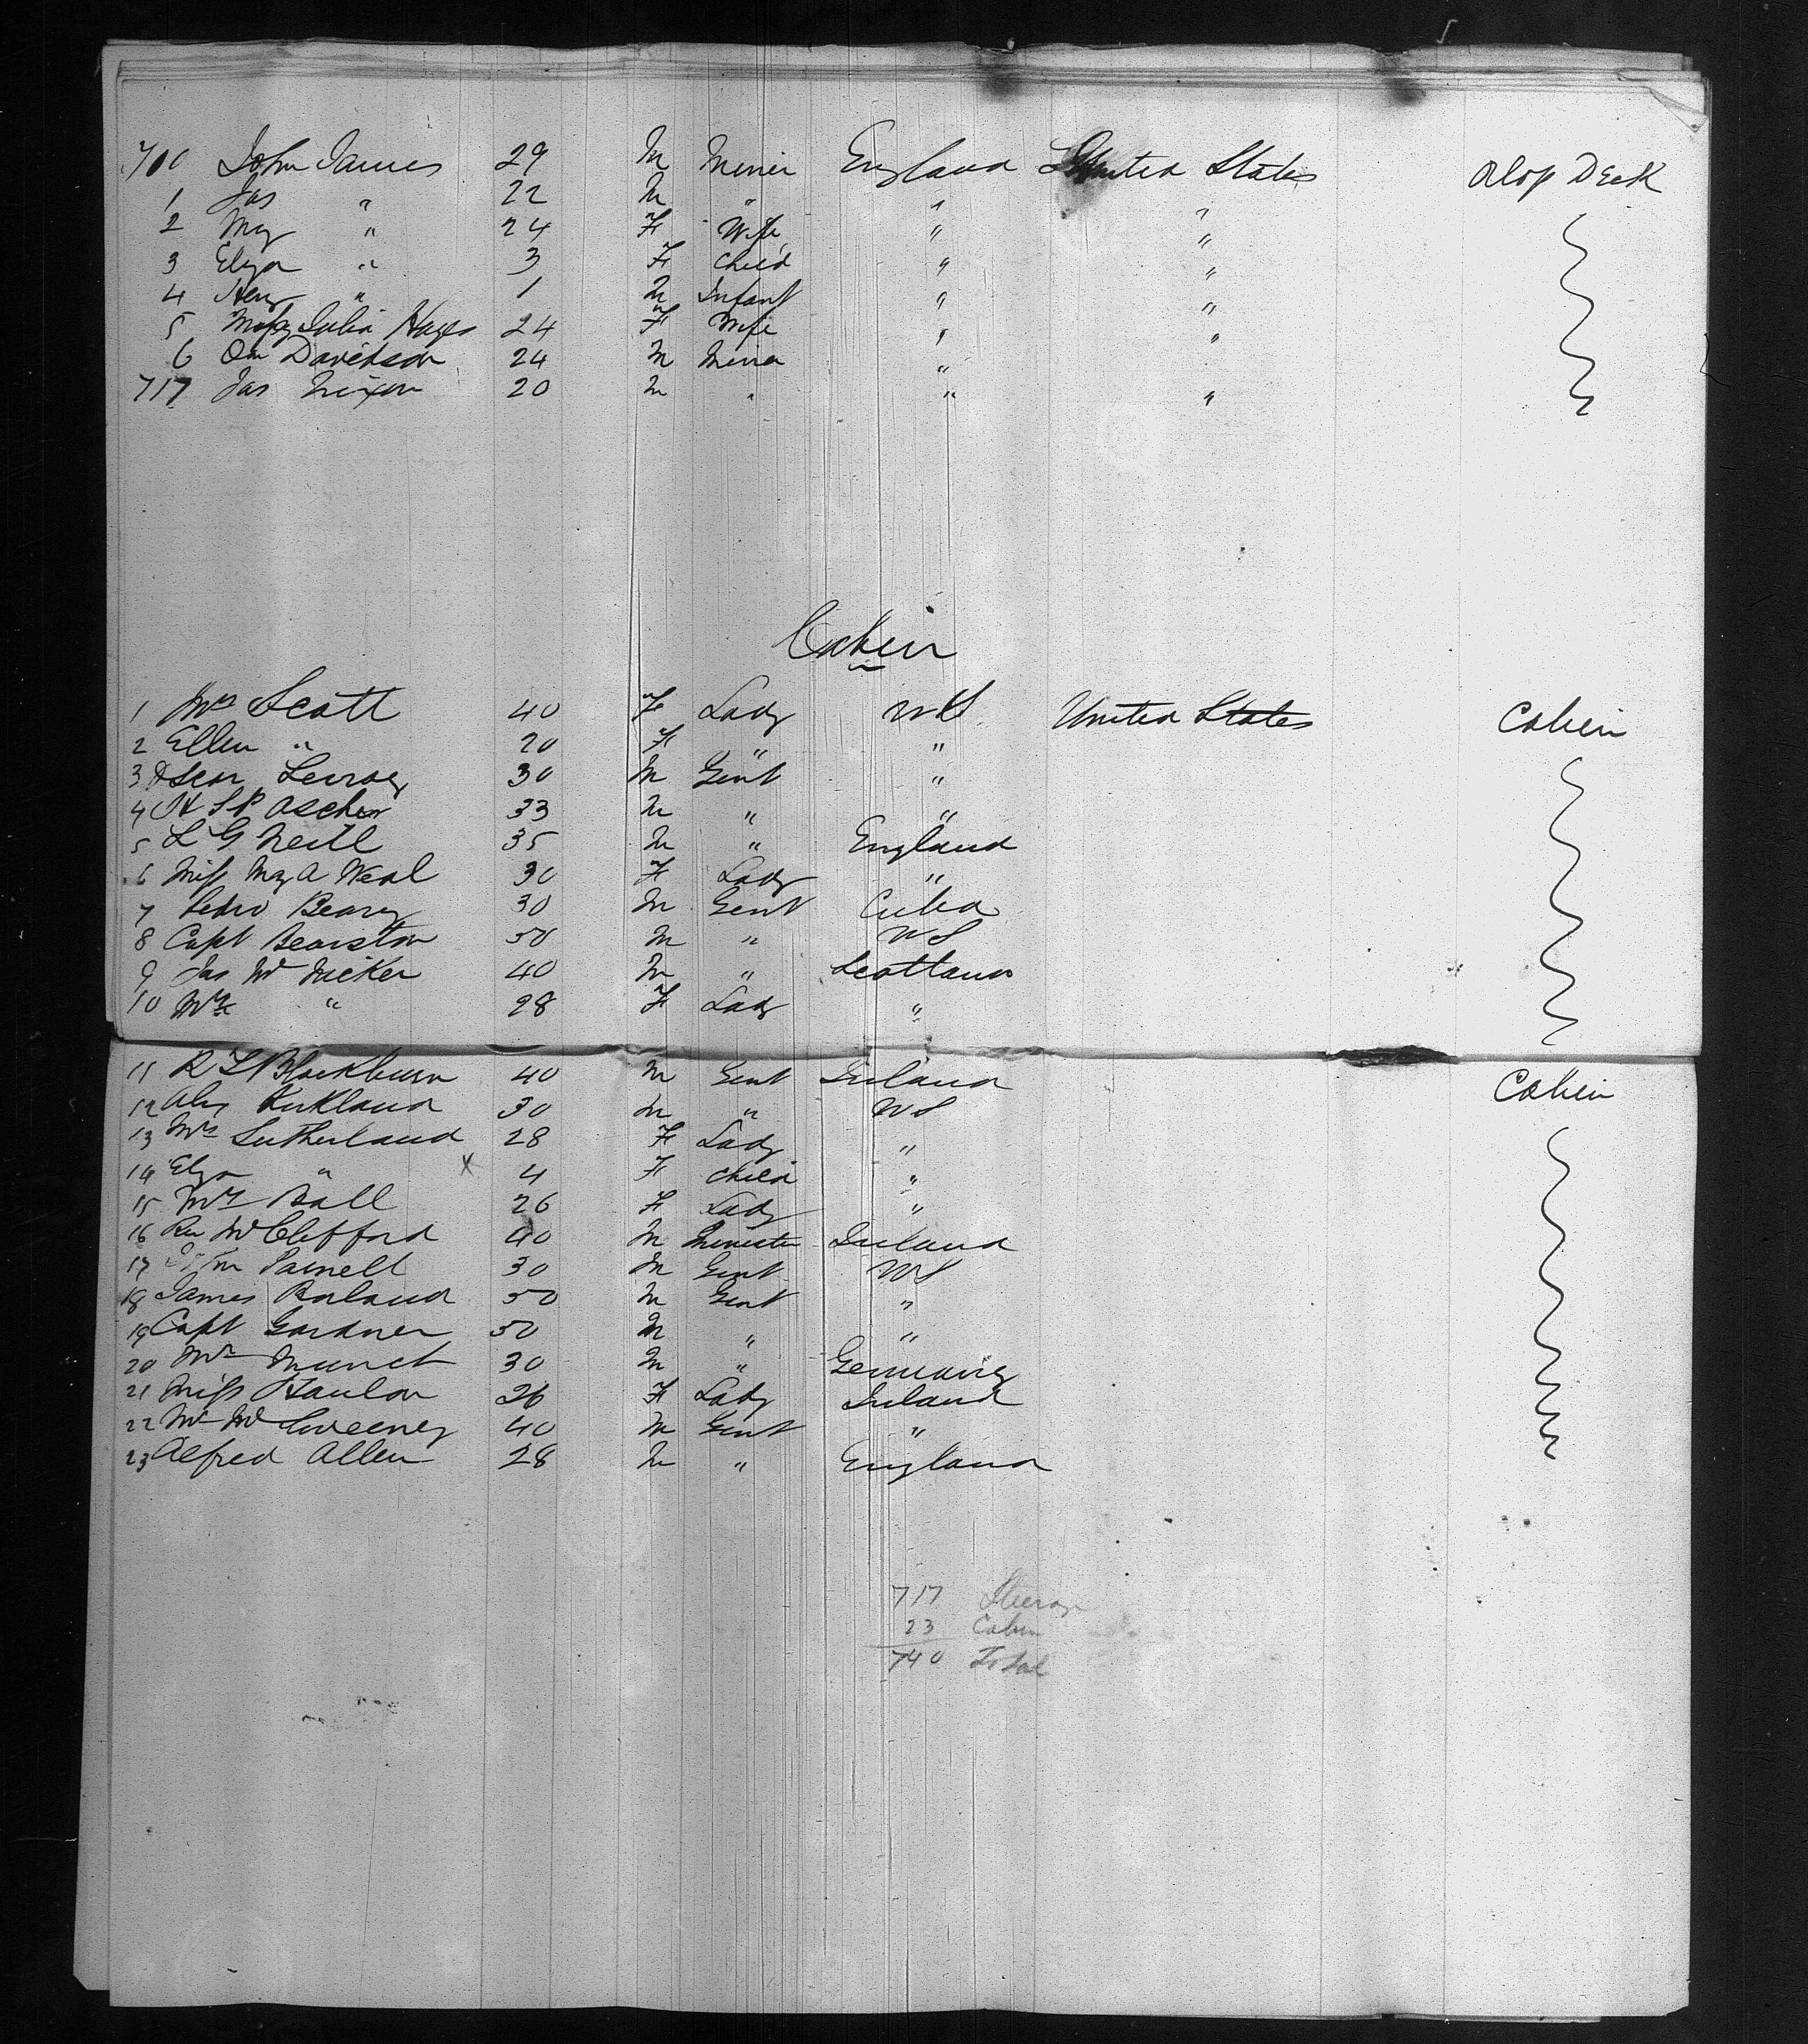 710 John James 29 M Miner England United States Orlop Deck
1 Jas " 22 M " " "
2 My " 24 F Wife " "
3 Eliza " 3 F Child " "
4 Heny " 1 M Infant " "
5 Mary Julia Hayes 24 F Wife " "
6 Davidson 24 M Miner "
717 Jas Nixon 20 M " " "
Cabin
1 Mrs Scott 40 F Lady US United States Cabin
2 Ellen " 20 F " "
3 Oscar Leuroy 30 M Gent "
4 H S P Ascher 33 M " "
5 L G Neill 35 M " England
6 Miss My A Neal 30 F Lady "
7 Pedro 30 M Gent Cuba
8 Capt Bearston 50 M " US
9 Jas Mc Nicker 40 M " Scotland
10 Mrs " 28 F Lady "
11 R L Blackburn 40 M Gent Ireland Cabin
12 Alex Kirkland 30 M " US
13 Mrs Sutherland 28 F Lady "
14 Eliza " X 4 F Child "
15 Mrs Ball 26 F Lady "
16 Rev Mc Clifford 40 M Minister Ireland
17 Parnell 30 M Gent US
18 James Borland 50 M Gent "
19 Capt Gardner 50 M " "
20 Mr Munch 30 M " Germany
21 Miss Hanlon 26 F Lady Ireland
22 Mr Mc Sweeney 40 M Gent "
23 Alfred Allen 28 M " England
717 Steerage
23 Cabin
740 Total